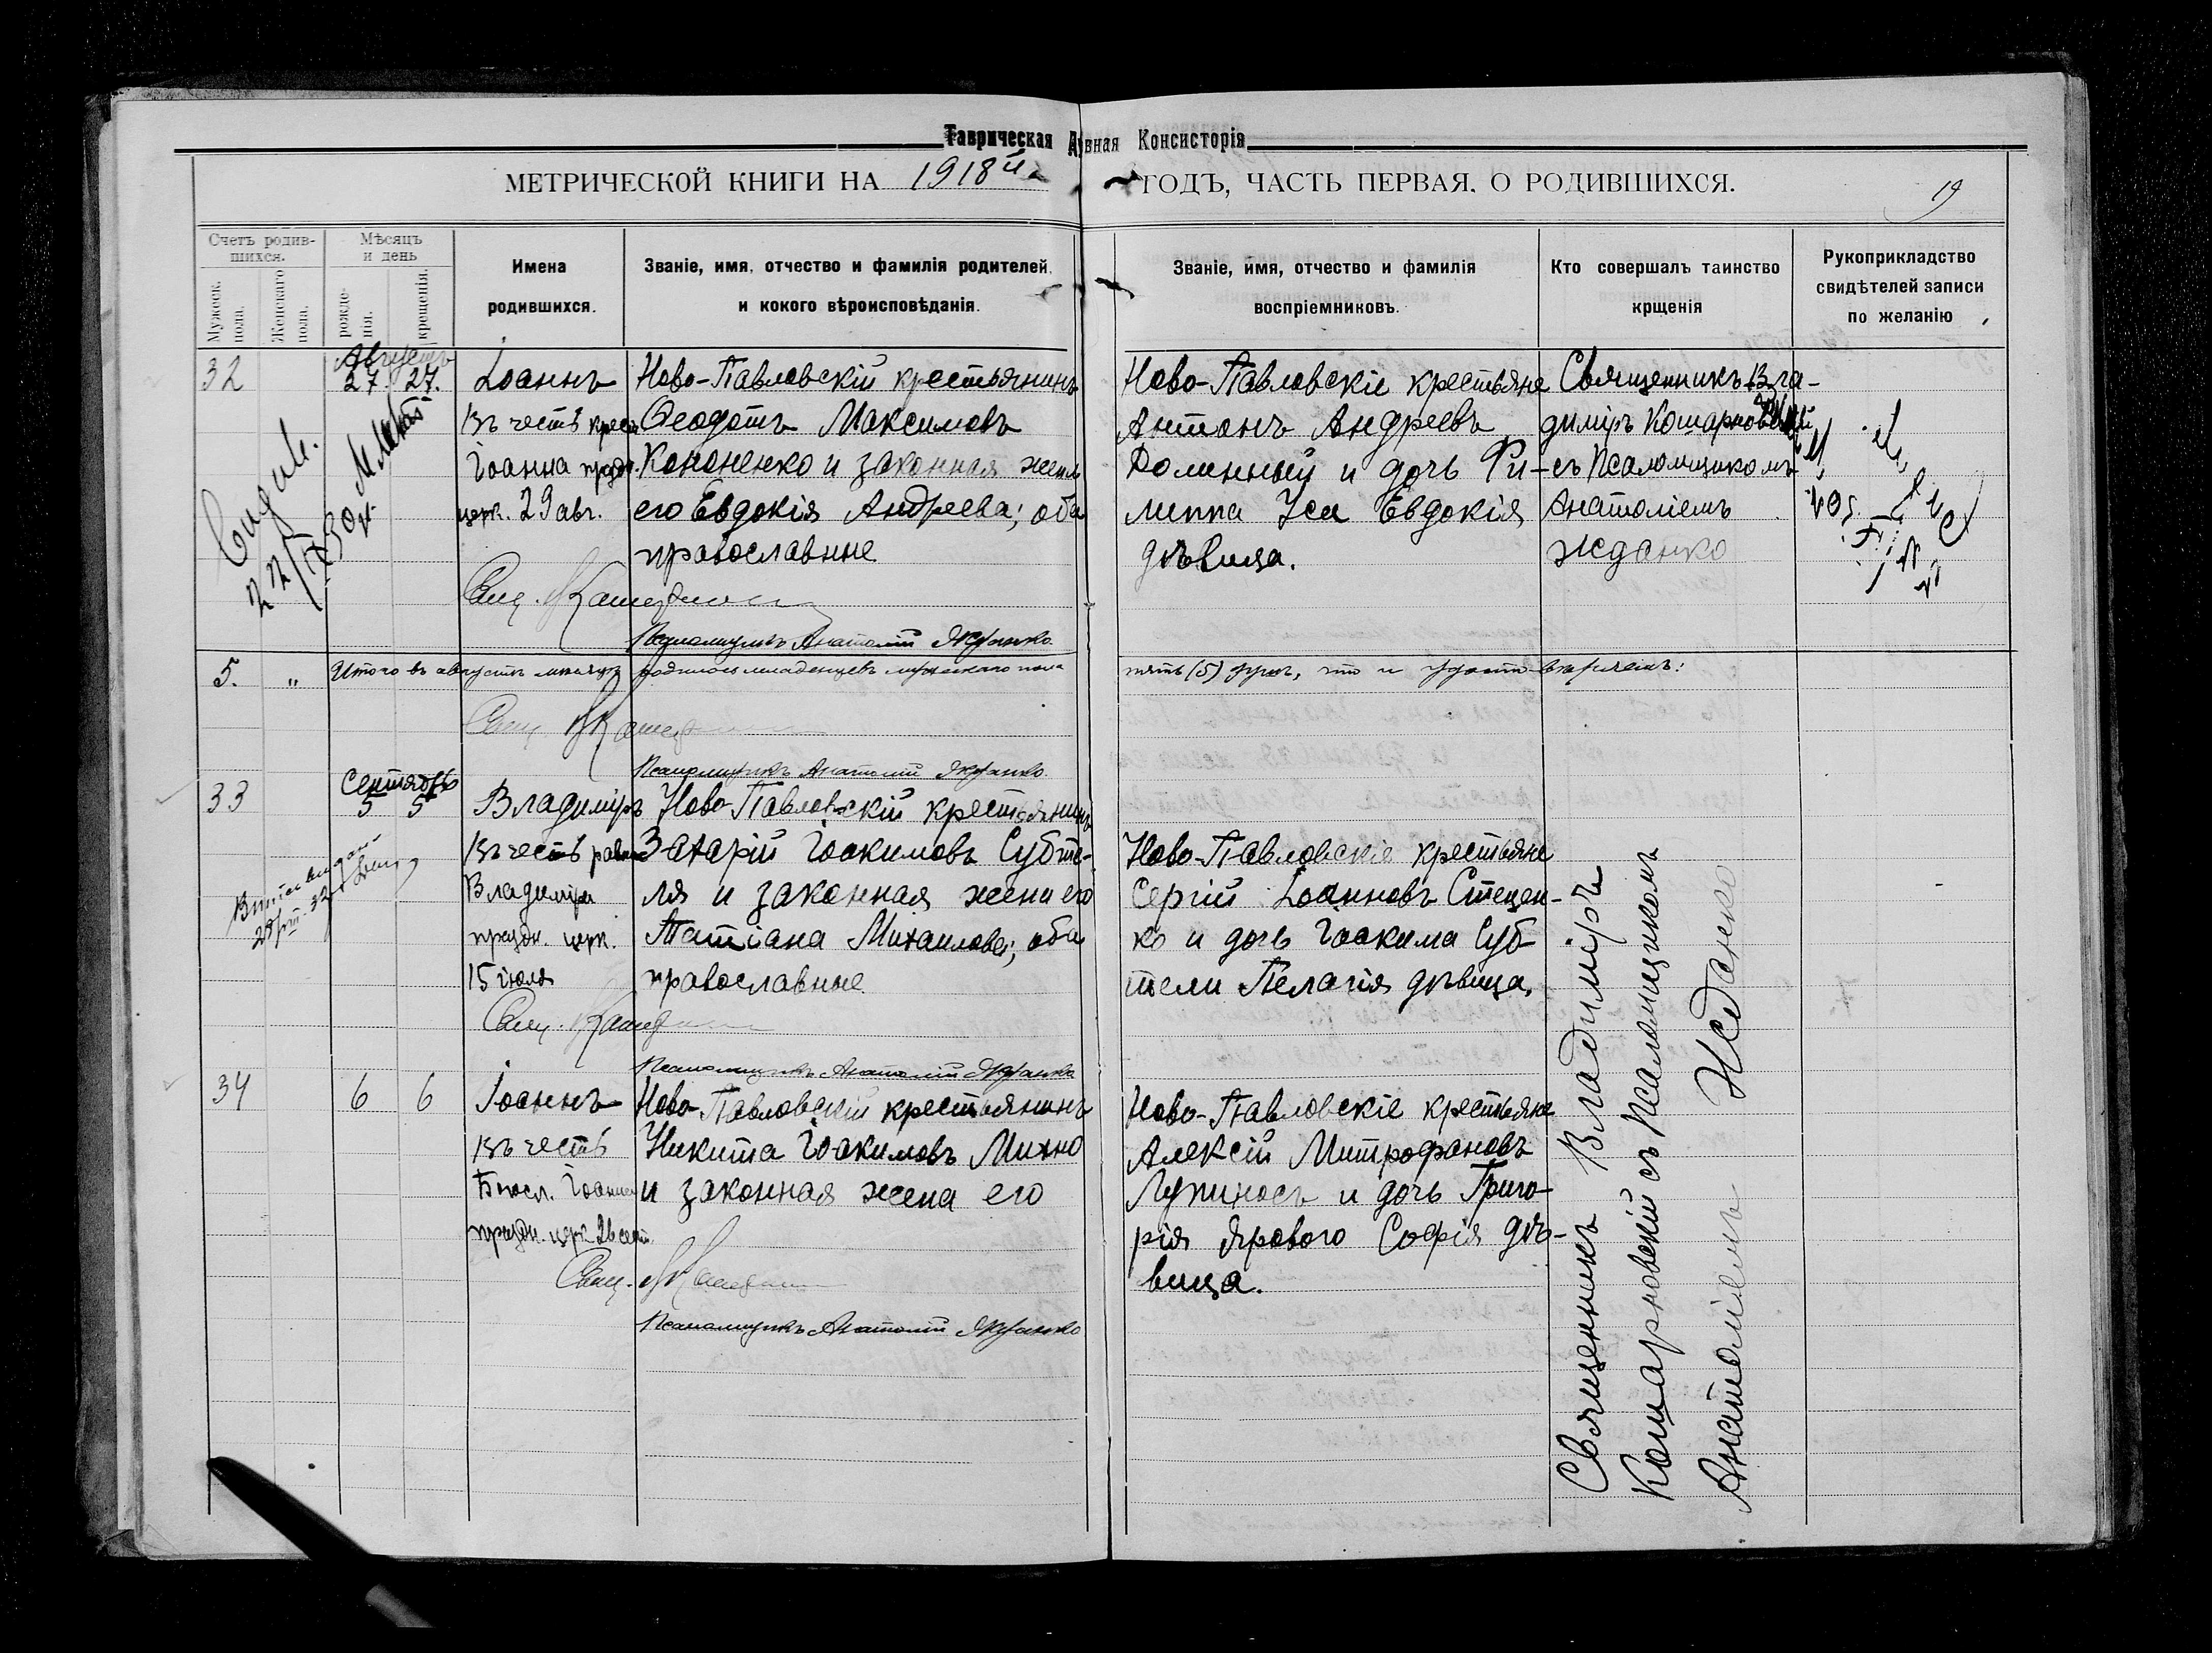 Таврическая Д
вная Консисторія
МЕТРИЧЕСКОЙ КНИГИ НА 1918й
ГОДЪ, ЧАСТЬ ПЕРВАЯ, О РОДИВШИХСЯ.
19
Счетъ родив-
шихся.
Мужеск.
пола.
Женскаго
пола.
Мѣсяцъ
и день
рожде-
нія.
крещенія.
Имена
родившихся.
Званіе, имя, отчество и фамилія родителей,
и кокого вѣроисповѣданія.
Званіе, имя, отчество и фамилія
воспріемниковъ.
Кто совершалъ таинство
крщенія
Рукоприкладство
свидѣтелей записи
по желанію
32
Августъ
27. 27.
Іоаннъ
Въ честь крест
Іоанна праздн.
церк. 29 авг.
Ново-Павловскій крестьянинъ
Ѳеодотъ Максимовъ
Кононенко и законная жена
его Евдокія Андреева; оба
православные
Ново-Павловскіе крестьяне
Антонъ Андреевъ
и дочь Фи-
липпа Уса Евдокія
дѣвица.
Священникъ Вла-
диміръ Кошарновскій
съ Псаломщикомъ
Анатоліемъ
Жданко
Свящ.
Псаломщикъ Анатолій Жданко
5. „ Итого въ августѣ мѣсяцѣ родилось младенцевъ мужескаго пола
пять (5) душъ, что и удостовѣряемъ:
Свящ.
Псаломщикъ Анатолій Жданко
33
Сентябрь
5 5
Владиміръ
Въ честь равн
Владиміра
праздн. церк.
15 іюля
Ново-Павловскій крестьянинъ
Захарій Іоакимовъ Субте-
ля и законная жена его
Татіана Михаилова; оба
православные
Ново-Павловскіе крестьяне
Сергій Іоанновъ Стецен-
ко и дочь Іоакима Суб-
тели Пелагія дѣвица.
Свящ.
Псаломщикъ Анатолій Жданко
34
6 6
Іоаннъ
Въ честь
Богосл. Іоанна
праздн. церк. 26 сент.
Ново-Павловскій крестьянинъ
Никита Іоакимовъ Михно
и законная жена его
Ново-Павловскіе крестьяне
Алексій Митрофановъ
Лупиносъ и дочь Григо-
рія Ярового Софія дѣ-
вица.
Свящ.
Псаломщикъ Анатолій Жданко
Священникъ Владиміръ
Кошарновскій съ Псаломщикомъ
Анатоліемъ Жданко